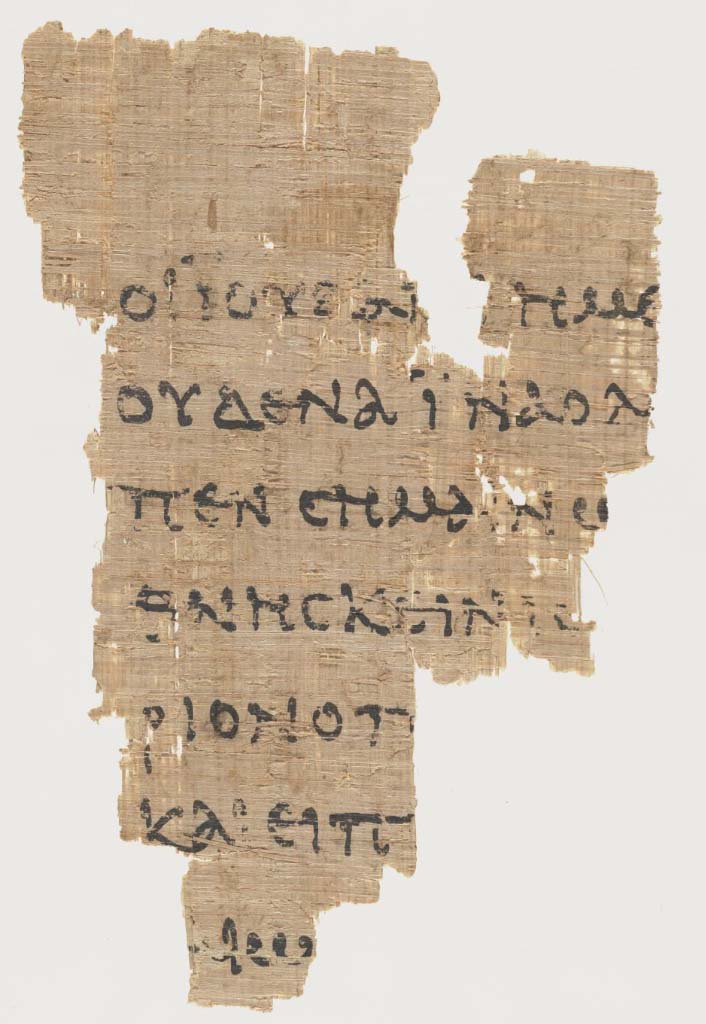 ΟΙ ΪΟΥΔΑΙ ΗΜΕ
ΟΥΔΕΝΑ ΪΝΑ Ο Λ
ΠΕΝ CΗΜΑΙΝΩ
ΘΝΗCΚΕΙΝ ΙC
ΡΙΟΝ Ο Π
ΚΑΙ ΕΙΠ
ΑΙΩ